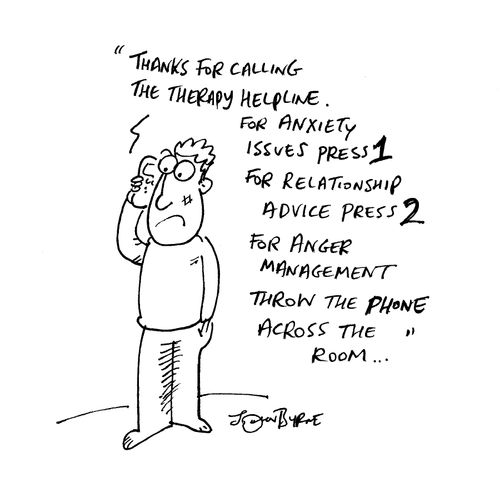 “THANKS FOR CALLING
THE THERAPY HELPLINE.
FOR ANXIETY
ISSUES PRESS 1
FOR RELATIONSHIP
ADVICE PRESS 2
FOR ANGER
MANAGEMENT
THROW THE PHONE
ACROSS THE
ROOM...”
JOHN BYRNE